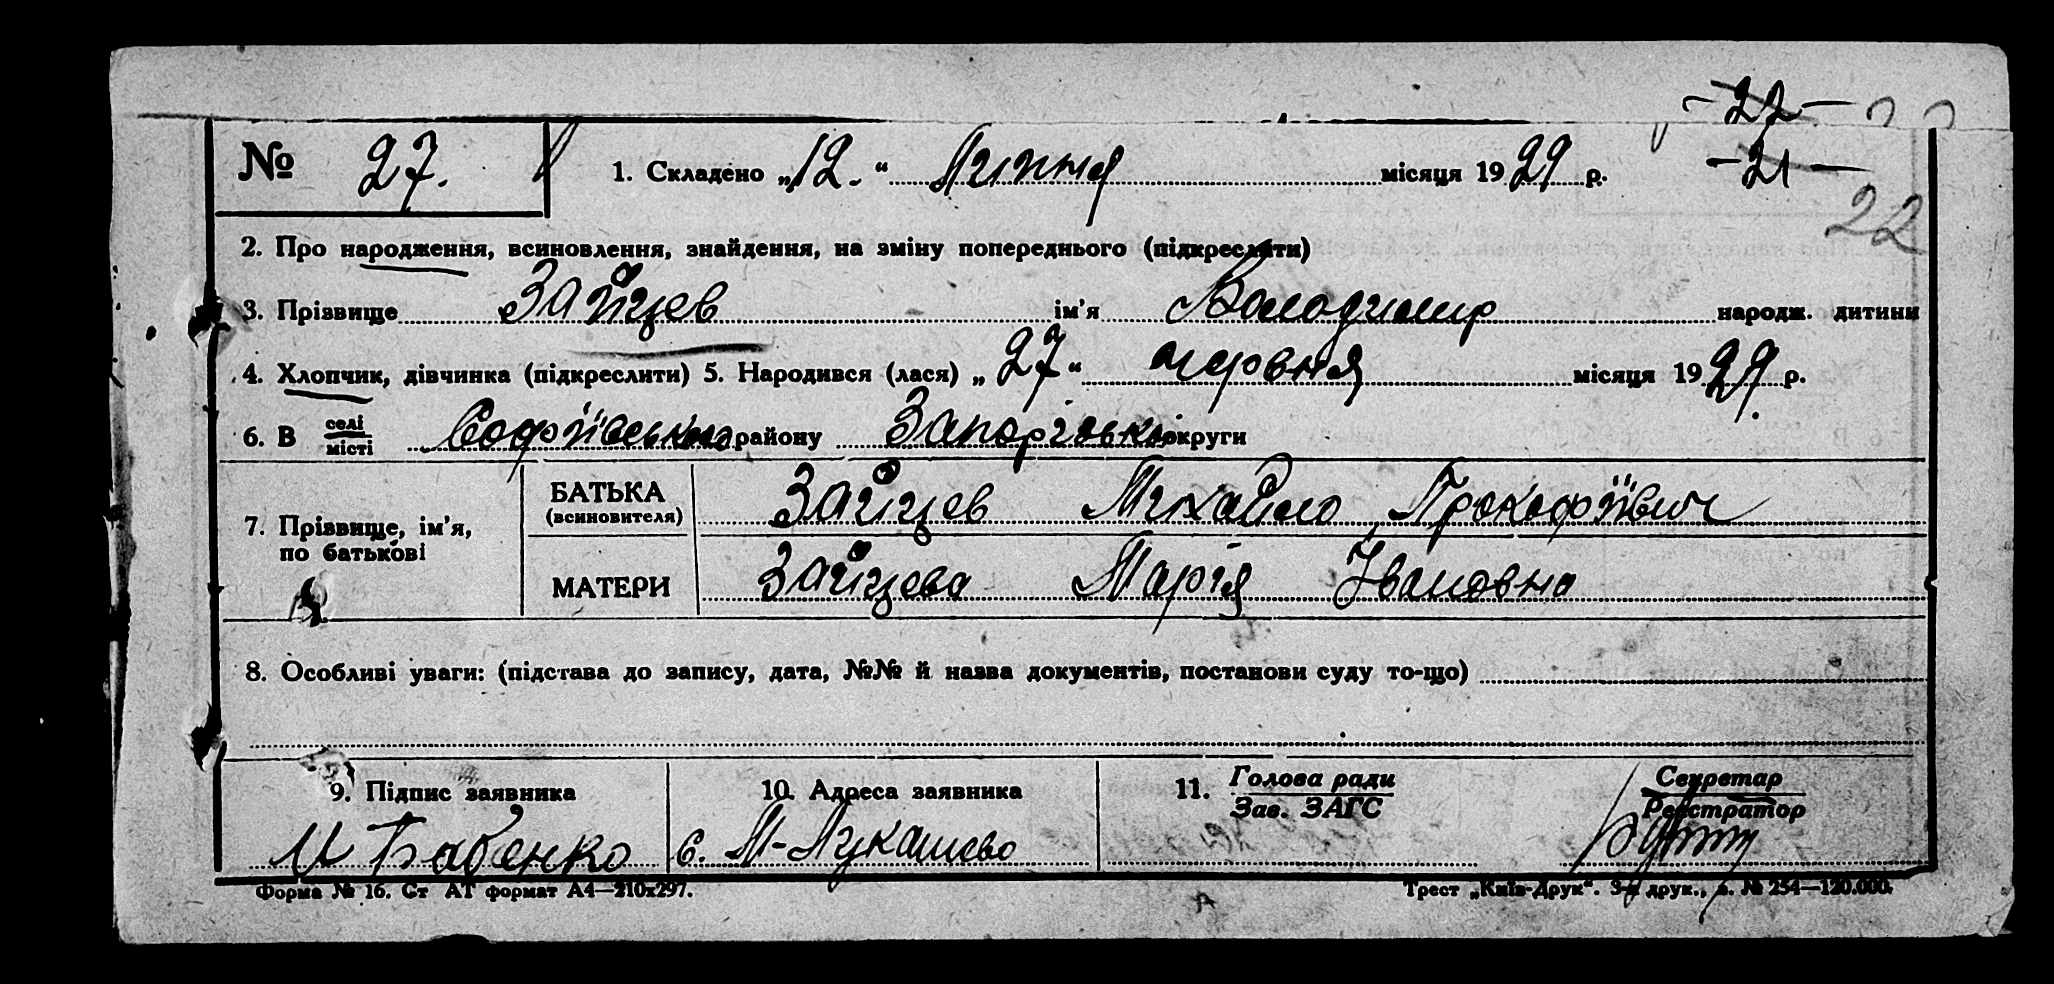 -22-
№ 27. 1. Складено „12.“ Липня місяця 1929 р. -21-
22
2. Про народження, всиновлення, знайдення, на зміну попереднього (підкреслити)
3. Прізвище Зайцев ім'я Володимир народж. дитини
4. Хлопчик, дівчинка (підкреслити) 5. Народився (лася) „27“ червня місяця 1929 р.
6. В селі місті Софіївського району Запорізької округи
7. Прізвище, ім'я, по батькові
БАТЬКА (всиновителя) Зайцев Михайло Прокофіївич
МАТЕРИ Зайцева Марія Івановна
8. Особливі уваги: (підстава до запису, дата, №№ й назва документів, постанови суду то-що)
9. Підпис заявника 10. Адреса заявника 11. Голова ради Зав. ЗАГС Секретар Реєстратор
И Бабенко с. М-Лукашево
Форма № 16. Ст АТ формат А4—210х297. Трест „Київ-Друк“. 3-я друк., з. № 254—120.000.